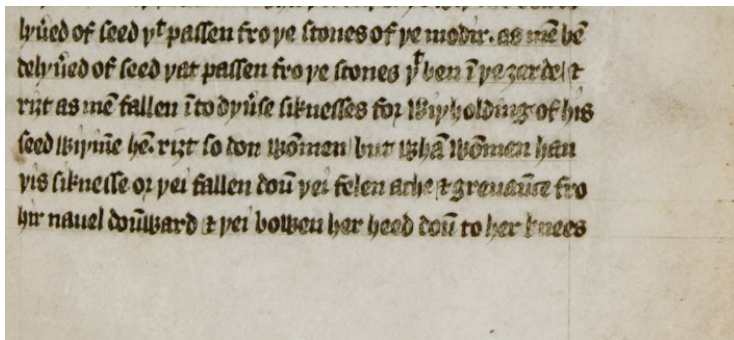 lyũed of seed yͭ passen fro ye stones of ye modir. as mē bē
delyũed of seed yat passen fro ye stones yͭ ben ī ye ȝerde ⁊
riȝt as mē fallen ī to dyũse siknesses for wiyholding of his
seed wiyīne hē. riȝt so don wōmen but whā wōmen han
yis siknesse or yei fallen doū yei felen ache ⁊ greuaūce fro
hir nauel doūward ⁊ yei bowen her heed doū to her knees